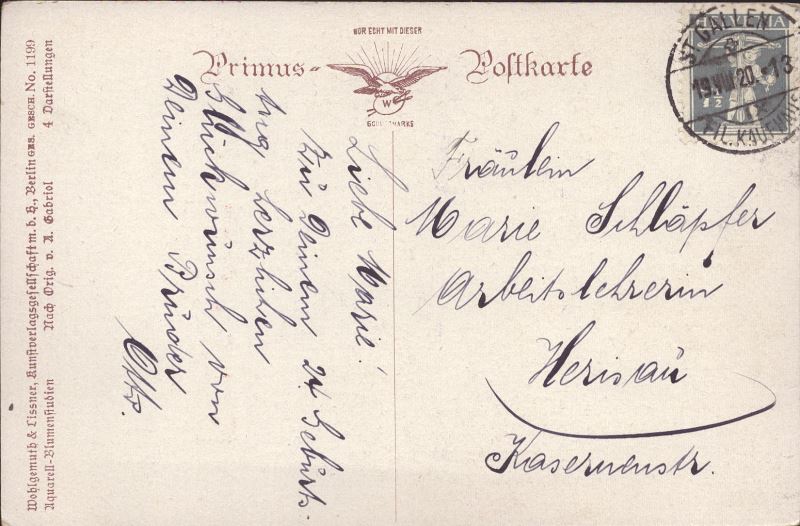 NUR ECHT MIT DIESER
Primus- Postkarte
W
SCHUTZMARKE
HELVETIA
7 1/2
ST. GALLEN
19.VIII.20.-13
FIL. KAUFHAUS
Liebe Marie!
Zu Deinem 24 Geburts-
tag herzlichen
Glückwunsch von
Deinem Bruder
Otto.
Fräulein
Marie Schläpfer
Arbeitslehrerin
Herisau
Kasernenstr.
Wohlgemuth & Lissner, Kunstverlagsgesellschaft m. b. H., Berlin GES. GESCH. No. 1199
Aquarell-Blumenstudien Nach Orig. v. A. Gabriol 4 Darstellungen